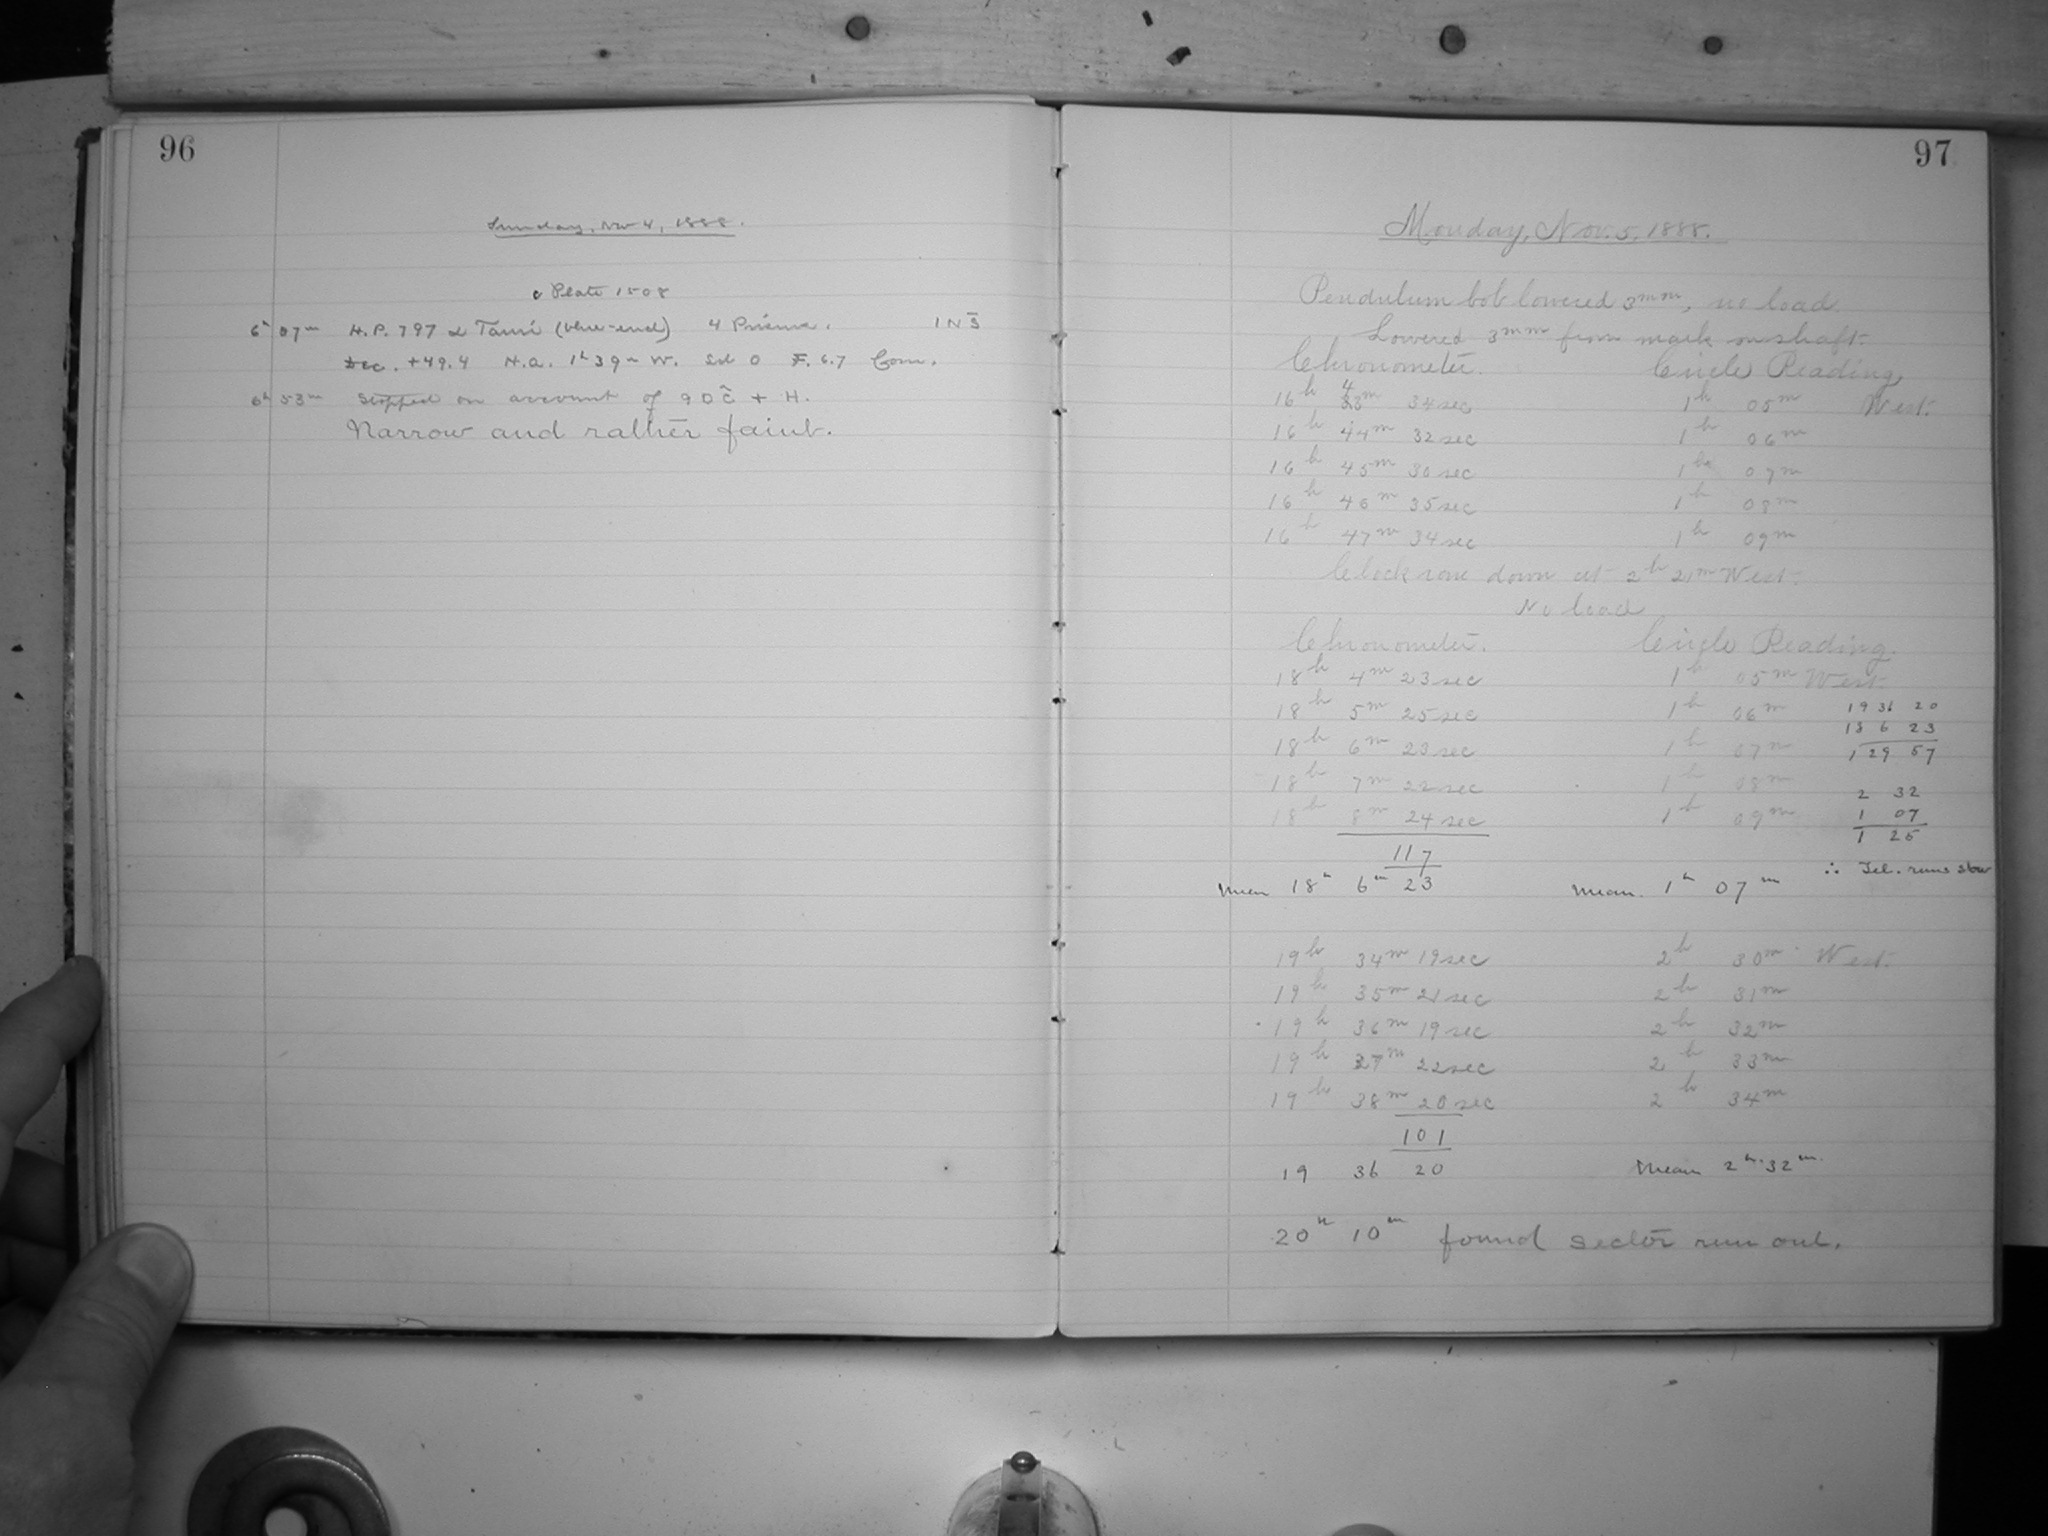 96
Sunday, Nov 4, 1888.
c Plate 1508
6h 07m H.P. 797 α Tauri (blue-end) 4 Prisms. 1 N S
Dec. +49.4 H.A. 1h 39m W. Sid 0 F. 6.7 Com.
6h 53m Stopped on account of 90 C + H.
Narrow and rather faint.
97
Monday, Nov. 5, 1888.
Pendulum bob lowered 3mm, no load.
Lowered 3mm from mark on shaft.
Chronometer. Circle Reading,
16h 43m 34sec 1h 05m West.
16h 44m 32sec 1h 06m
16h 45m 30sec 1h 07m
16h 46m 35sec 1h 08m
16h 47m 34sec 1h 09m
Clock ran down at 2h 21m West.
No load
Chronometer. Circle Reading.
18h 4m 23sec 1h 05m West.
18h 5m 25sec 1h 06m 19 36 20
18h 6m 23sec 1h 07m 18 6 23
1 29 57
18h 7m 22sec 1h 08m 2 32
18h 8m 24sec 1h 09m 1 07
1 25
117
∴ Tel. runs slow
Mean 18h 6m 23 Mean. 1h 07m
19h 34m 19sec 2h 30m West.
19h 35m 21sec 2h 31m
19h 36m 19sec 2h 32m
19h 37m 22sec 2h 33m
19h 38m 20sec 2h 34m
101
19 36 20 Mean 2h 32m.
20h 10m found sector run out.